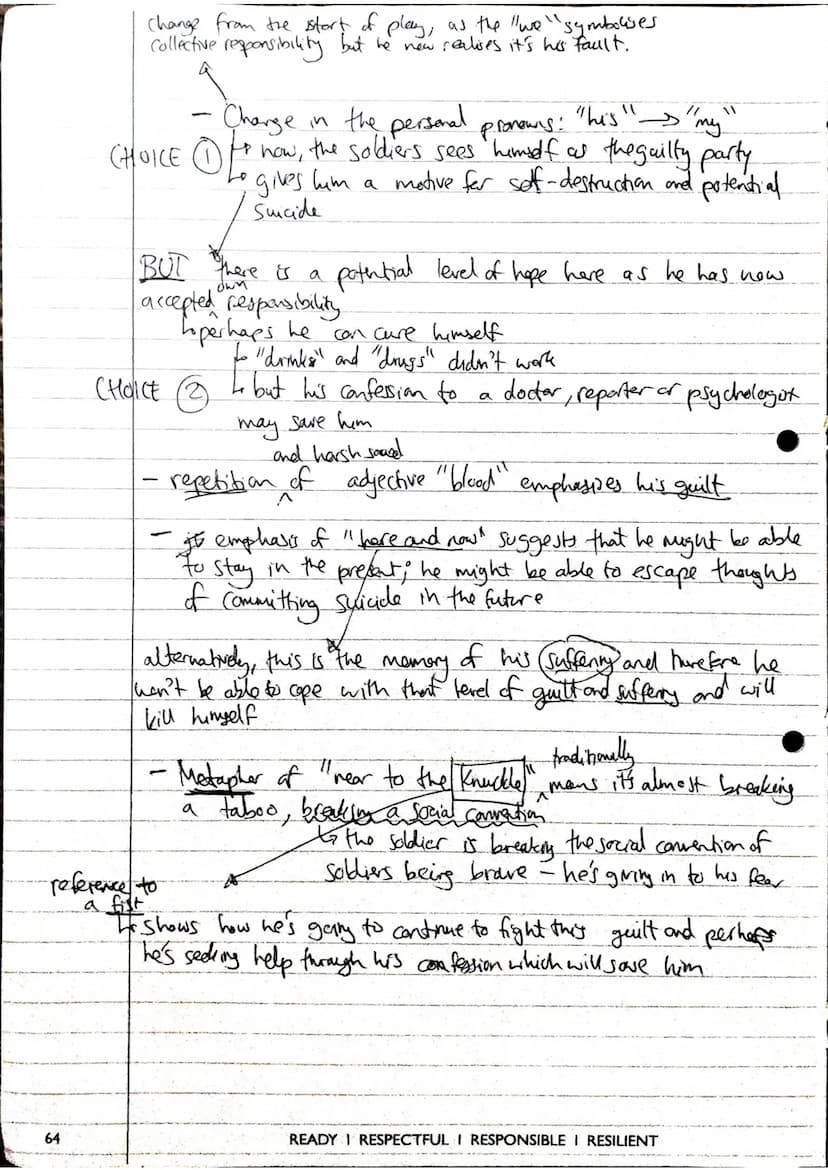 change from the start of play, as the "we" symbolises
collective responsibility but he now realises it's his fault.
- Change in the personal pronouns: "his" → "my"
CHOICE ① ↳ now, the soldiers sees himself as the guilty party
↳ gives him a motive for self-destruction and potential
suicide
BUT there is a potential level of hope here as he has now
accepted own responsibility
↳ perhaps he can cure himself
↳ "drinks" and "drugs" didn't work
CHOICE ② ↳ but his confession to a doctor, reporter or psychologist
may save him
and harsh sound
- repetition of adjective "blood" emphasizes his guilt
- emphasis of "here and now" suggests that he might be able
to stay in the present; he might be able to escape thoughts
of committing suicide in the future
alternatively, this is the memory of his suffering and therefore he
won't be able to cope with that level of guilt and suffering and will
kill himself
traditionally
- Metapher of "near to the knuckle" means it's almost breaking
a taboo, breaking a social convention
↳ the soldier is breaking the social convention of
soldiers being brave - he's giving in to his fear
reference to
a fist
↳ shows how he's going to continue to fight this guilt and perhaps
he's seeking help through his confession which will save him
64 READY | RESPECTFUL | RESPONSIBLE | RESILIENT